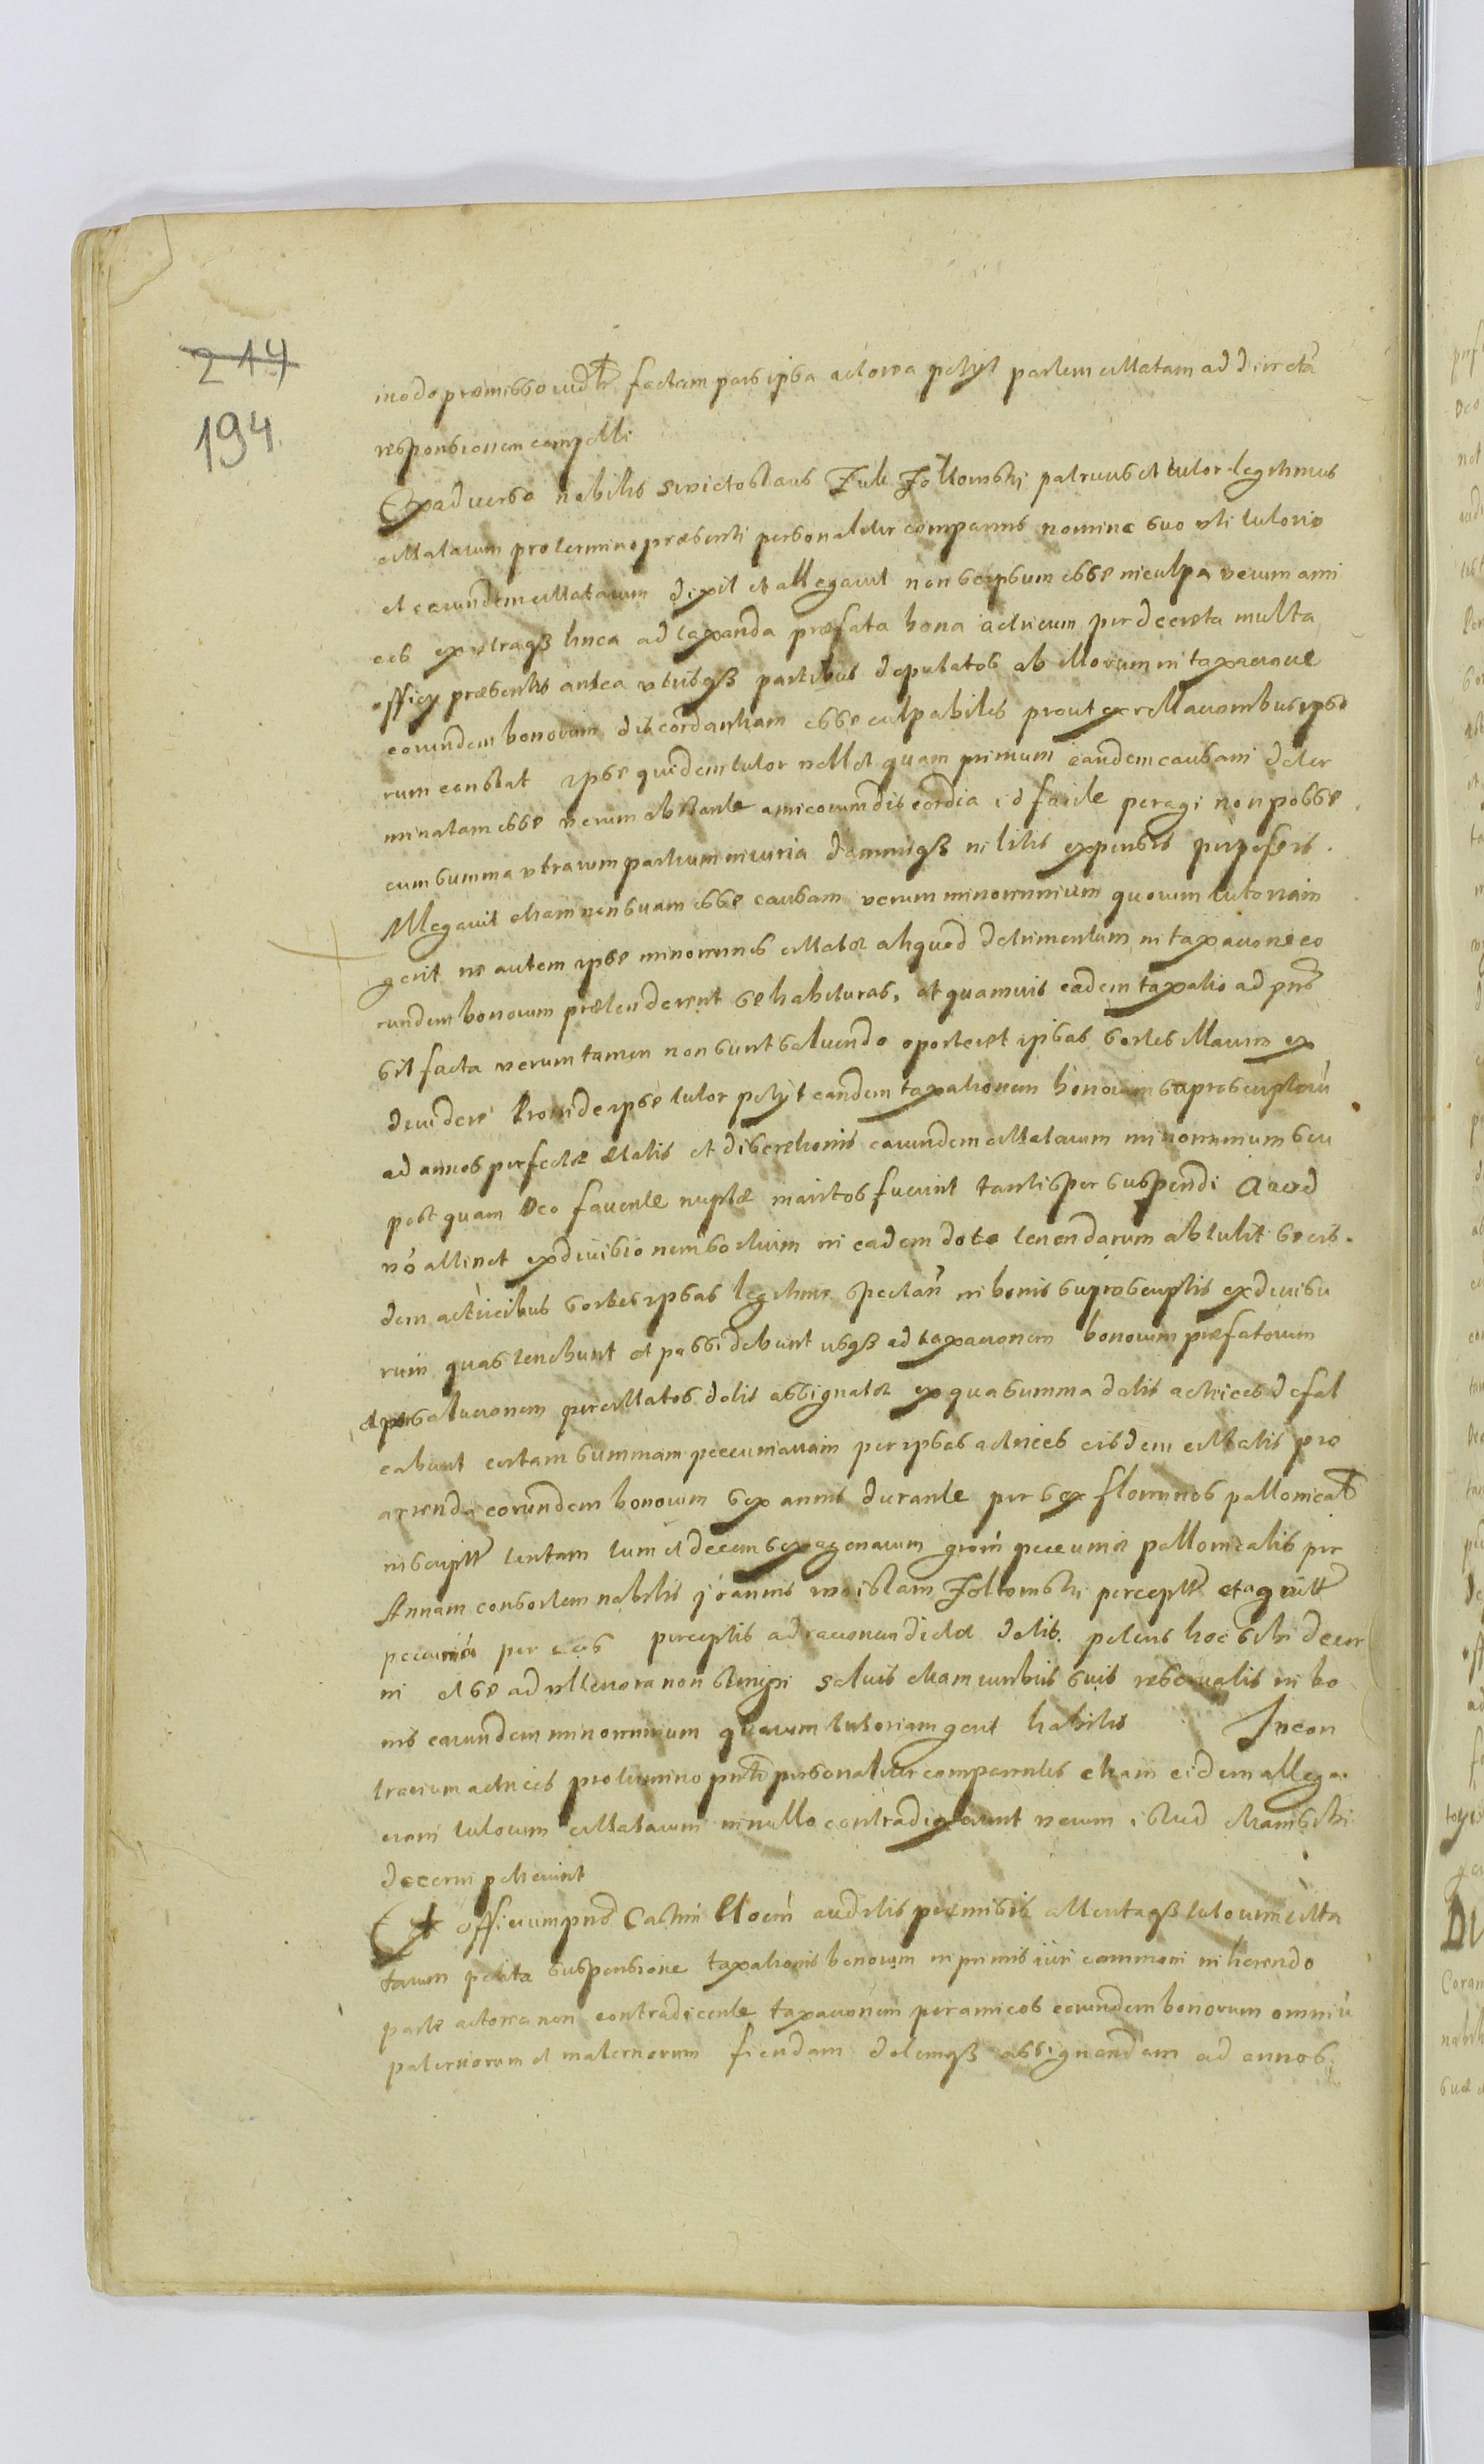 214
194
modo præmisso judltr factam pars ipsa actorea petyt partem citatam ad directã
responsionem compelli
Exaduerso nobilis Swietoslaus Zuk Foltowski patruus et tutor legitimus
citatarum pro termino præsenti personaliter comparens nomine suo vti tutorio
et earundem citatarum dixit et allegavit non se ipsum esse in culpa verum ami
cos ex vtraqß linea ad taxanda præfata bona actricum per decreta multa
officy præsentis antea vtrisqß partibus deputatos ob illorum in taxacione
eorundem bonorum discordantiam esse culpabiles prout ex rellacionibus ipso
rum constat ipse quidem tutor vellet quam primum eandem causam deter
minatam esse verum obstante amicorum discordia id facile peragi non posse
cum summa vtrarum partium iniuria damnisqß in litis expensis perpessis.
Allegavit etiam non suam esse causam verum minorennium quorum tutoriam
gerit ne autem ipse minorennes citatæ aliquod detrimentum in taxacione eo
rundem bonorum prætenderent se habituras, et quamvis eadem taxatio ad pñs
sit facta verumtamen non sunt solvendo oporteret ipsas sortes illarum ex
dividere Proinde ipse tutor petyt eandem taxationem bonorum suprascriptorũ
ad annos perfectæ ætatis et discretionis earundem citatarum minorennium seu
post quam Deo favente nuptæ maritos fuerint tantisper suspendi Quod
vó attinet exdivisionem sortium in eadem dote tenendarum obtulit se eis
dem actricibus sortes ipsas legitime spectañ in bonis suprascriptis exdivisu
rum quas tenebunt et possidebunt usqß ad taxacionem bonorum præfatorum
et persolucionem per citatos dotis assignatæ ex qua summa dotis actrices defal
cabunt certam summam pecuniariam per ipsas actrices eisdem citatis pro
arenda eorundem bonorum sex annis durante per sex florenos pollonicał
inscriptt tentam tum et decem sexagenarum grom pecuniæ pollonicalis per
Annam consortem nobilis Joannis Woislaw Foltowski perceptt et agnitt
pecunia per eos perceptis ad racionem dictæ dotis. petens hoc sibi decer
ni et se ad vlteriora non stringi saluis etiam iuribus suis reservatis in bo
nis earundem minorennium quarum tutoriam gerit habitis Incon
trarium actrices pro termino pnti personaliter comparentes etiam eidem allega
cioni tutorum citatarum in nullo contradixerunt verum istud etiam sibi
decerni petierunt
Et officium pns Castrn Plocen auditis præmissis attentaqß tutorum cita
tarum petita suspensione taxationis bonorum in primis iuri communi inherendo
parte actorea non contradicente taxacionem per amicos eorundem bonorum omniũ
paternorum et maternorum fiendam dotemqß assignandam ad annos